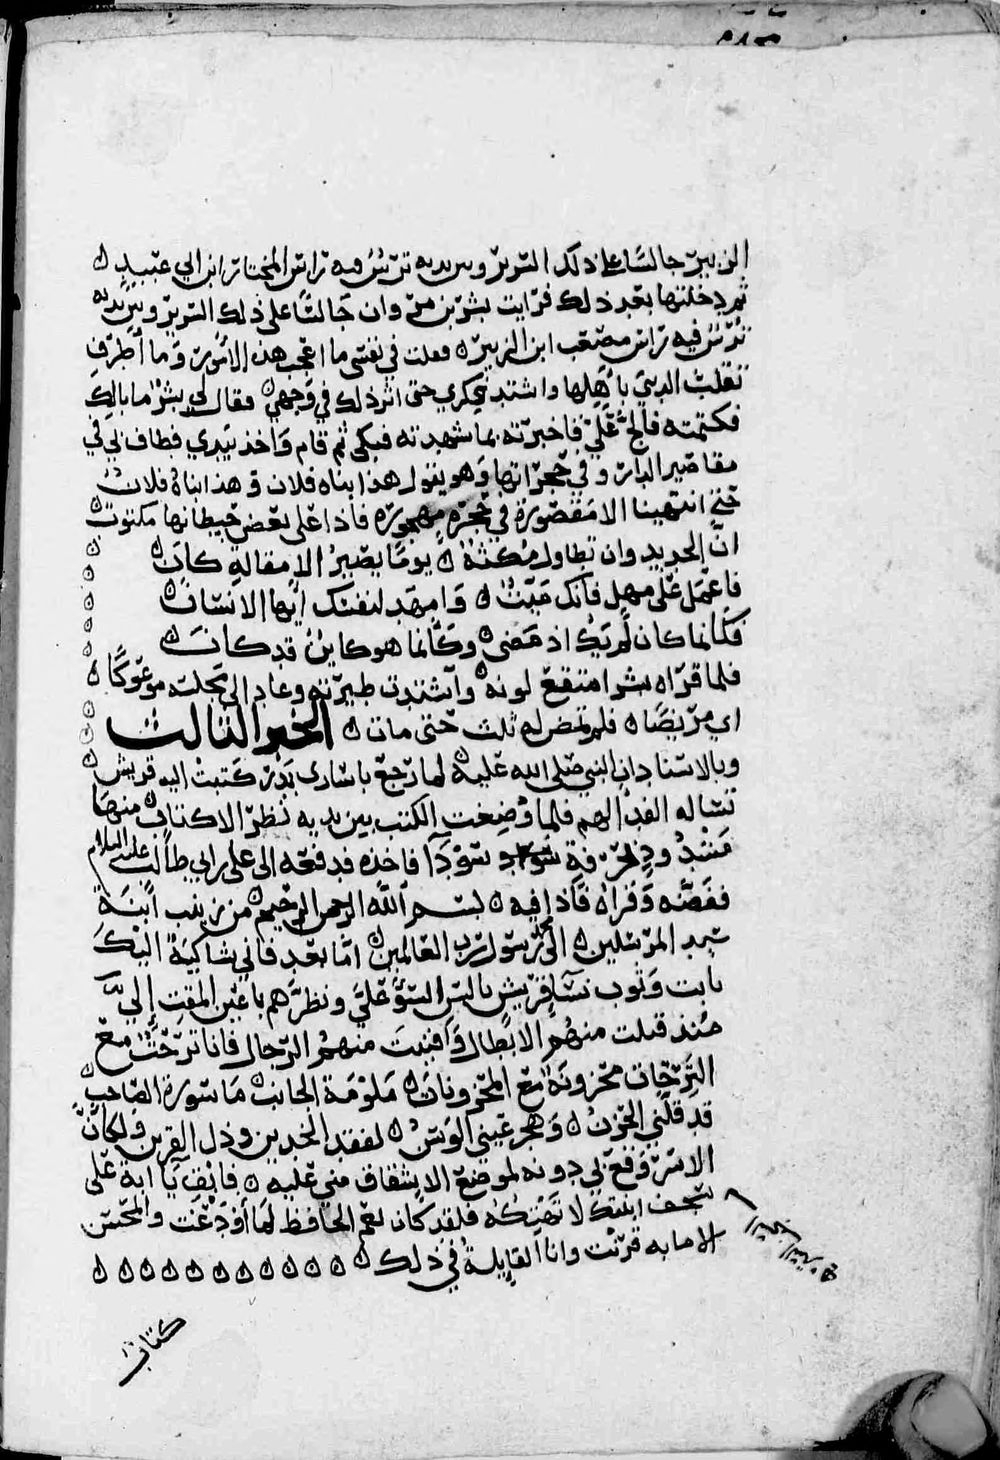 الزبير جالسًا على ذلك السرير وبين يديه ترس فيه راس المختار ابن ابي عبيد ه
ثم دخلتها بعد ذلك فرايت بشر بن مروان جالسًا على ذلك السرير وبين يديه
ترس فيه راس مصعب ابن الزبير ه فقلت في نفسي ما اعجب هذه الامور وما أطرف
تقلب الدنيا بأهلها واشتد فكري حتى اثر ذلك في وجهي ه فقال لي بشر ما بالك
فكتمته فالح علي فاخبرته بما شهدته فبكى ثم قام واخذ بيدي فطاف بي في
مقاصير الدار وفي حجراتها وهو يقول هذا بناه فلان وهذا بناه فلان
حتى انتهينا الا مقصورة في حجره مهجوره فاذا على بعض حيطانها مكتوب ه
ان الجديد وان تطاول مكثه ه يومًا يصير الا مقالة كان ه
فاعمل على مهل فانك ميّت ه وامهد لنفسك ايها الانسان ه
فكانما ما كان لم يك اذ مضى ه وكانما هو كاين قد كان ه
فلما قراه بشر امتقع لونه ه واشتدت طيرته وعاد الى مجلسه موعوكًا ه
اي مريضًا ه فلم تمض له ثلث حتى مات ه الخبر الثالث
وبالاسناد ان النبي صلى الله عليه ه لما رجع باسارى بدر كتبت اليه قريش ه
تساله الفدا لهم فلما وضعت الكتب بين يديه نظر الا كتاب ه منها
فاخذه فدفعه الى علي بن ابي طالب عليه السلام
ففضه وقراه فاذا فيه ه بسم الله الرحمن الرحيم ه من زينب ابنة
سيد المرسلين ه الى رسول رب العالمين ه امّا بعد فاني شاكية اليك
يا بت وثوب نسآ قريش بالسن السؤ عليّ ونظرهم باعين المقت إليّ
منذ قتلت منهم الابطال وافنيت منهم الرجال فانا
محزونة مع المحزونات ه ملومة الجانب ه ماسورة الصاحب ه
قد قلني الحزن ه وهجر عيني الوسن ه لفقد الخدين وذل القرين ولكان
الاسر وقع بي دونه لموضع الاشفاق مني عليه ه فابق يا ابة على
سجف ابنتك لا تهتكه فلقد كان نعم الحافظ لما أودعت والمحسن
الا ما به قرنت وانا القايلة في ذلك ه ه ه ه ه ه ه ه ه ه ه
كتاب